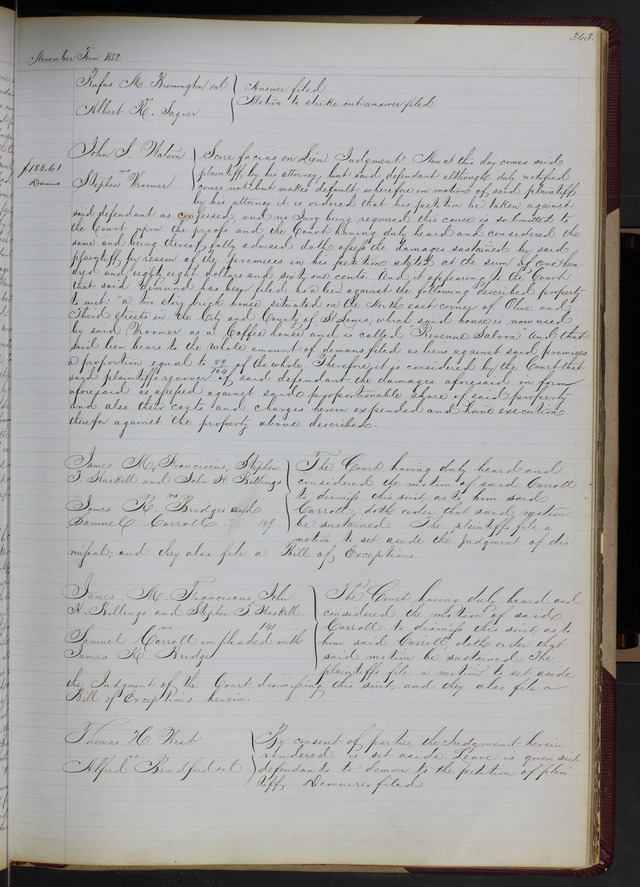 343.
November Term 1852
Rufus M. Bremington et al
vs
Albert R. Sagner
Answer filed
Motion to strike out answer filed
$188.61
Dames
John S. Watson
vs
Stephen Woomer
Scire facias on Lien Judgment Now at this day comes said
plaintiff by his attorney, but said defendant although duly notified
comes not but makes default, wherefore on motion of said plaintiff
by his attorney it is ordered that his petition be taken against
said defendant as confessed, and no Jury being required this cause is submitted to
the Court upon the proofs and the Court having duly heard and considered the
same and being thereof fully advised doth assess the damages sustained by said
plaintiff by reason of the premises in his petition stated at the sum of one hun-
dred and eighty eight dollars and sixty one cents. And it appearing to the Court
that said demand has been filed as a lien against the following described property
to wit: "a two story brick house situated on the North east corner of Olive and
Third streets in the City and County of St Louis, which said house is now used
by said Woomer as a Coffee house and is called "Revenue Saloon" and that
said lien bears to the whole amount of demands filed as liens against said premises
a proportion equal to of the whole. Therefore it is considered by the Court that
said plaintiff recover of said defendant the damages aforesaid in form
aforesaid as assessed against said proportionable share of said property
and also their costs and charges herein expended and have execution
therefor against the property above described.
James M. Franciscus, Stephen
T Haskell and John H. Billings
vs
James R. Bridges and
Samuel Carroll 149
The Court having duly heard and
considered the motion of said Carroll
to dismiss this suit, as to him said
Carroll, doth order that said motion
be sustained The plaintiffs file a
motion to set aside the Judgment of dis-
missal, and they also file a Bill of Exceptions.
James M. Franciscus, John
H. Billings and Stephen T Haskell
vs 141
Samuel Carroll impleaded with
James R. Bridge
The Court having duly heard and
considered the motion of said
Carroll to dismiss this suit, as to
him said Carroll, doth order that
said motion be sustained The
plaintiffs file a motion to set aside
the Judgment of the Court dismissing this suit, and they also file a
Bill of Exceptions herein.
Thomas H. West
vs
Alfred Bradford et al
By consent of parties, the Judgment herein
rendered is set aside. Leave is given said
defendants to demur to the petition of plain-
tiff. Demurrer filed